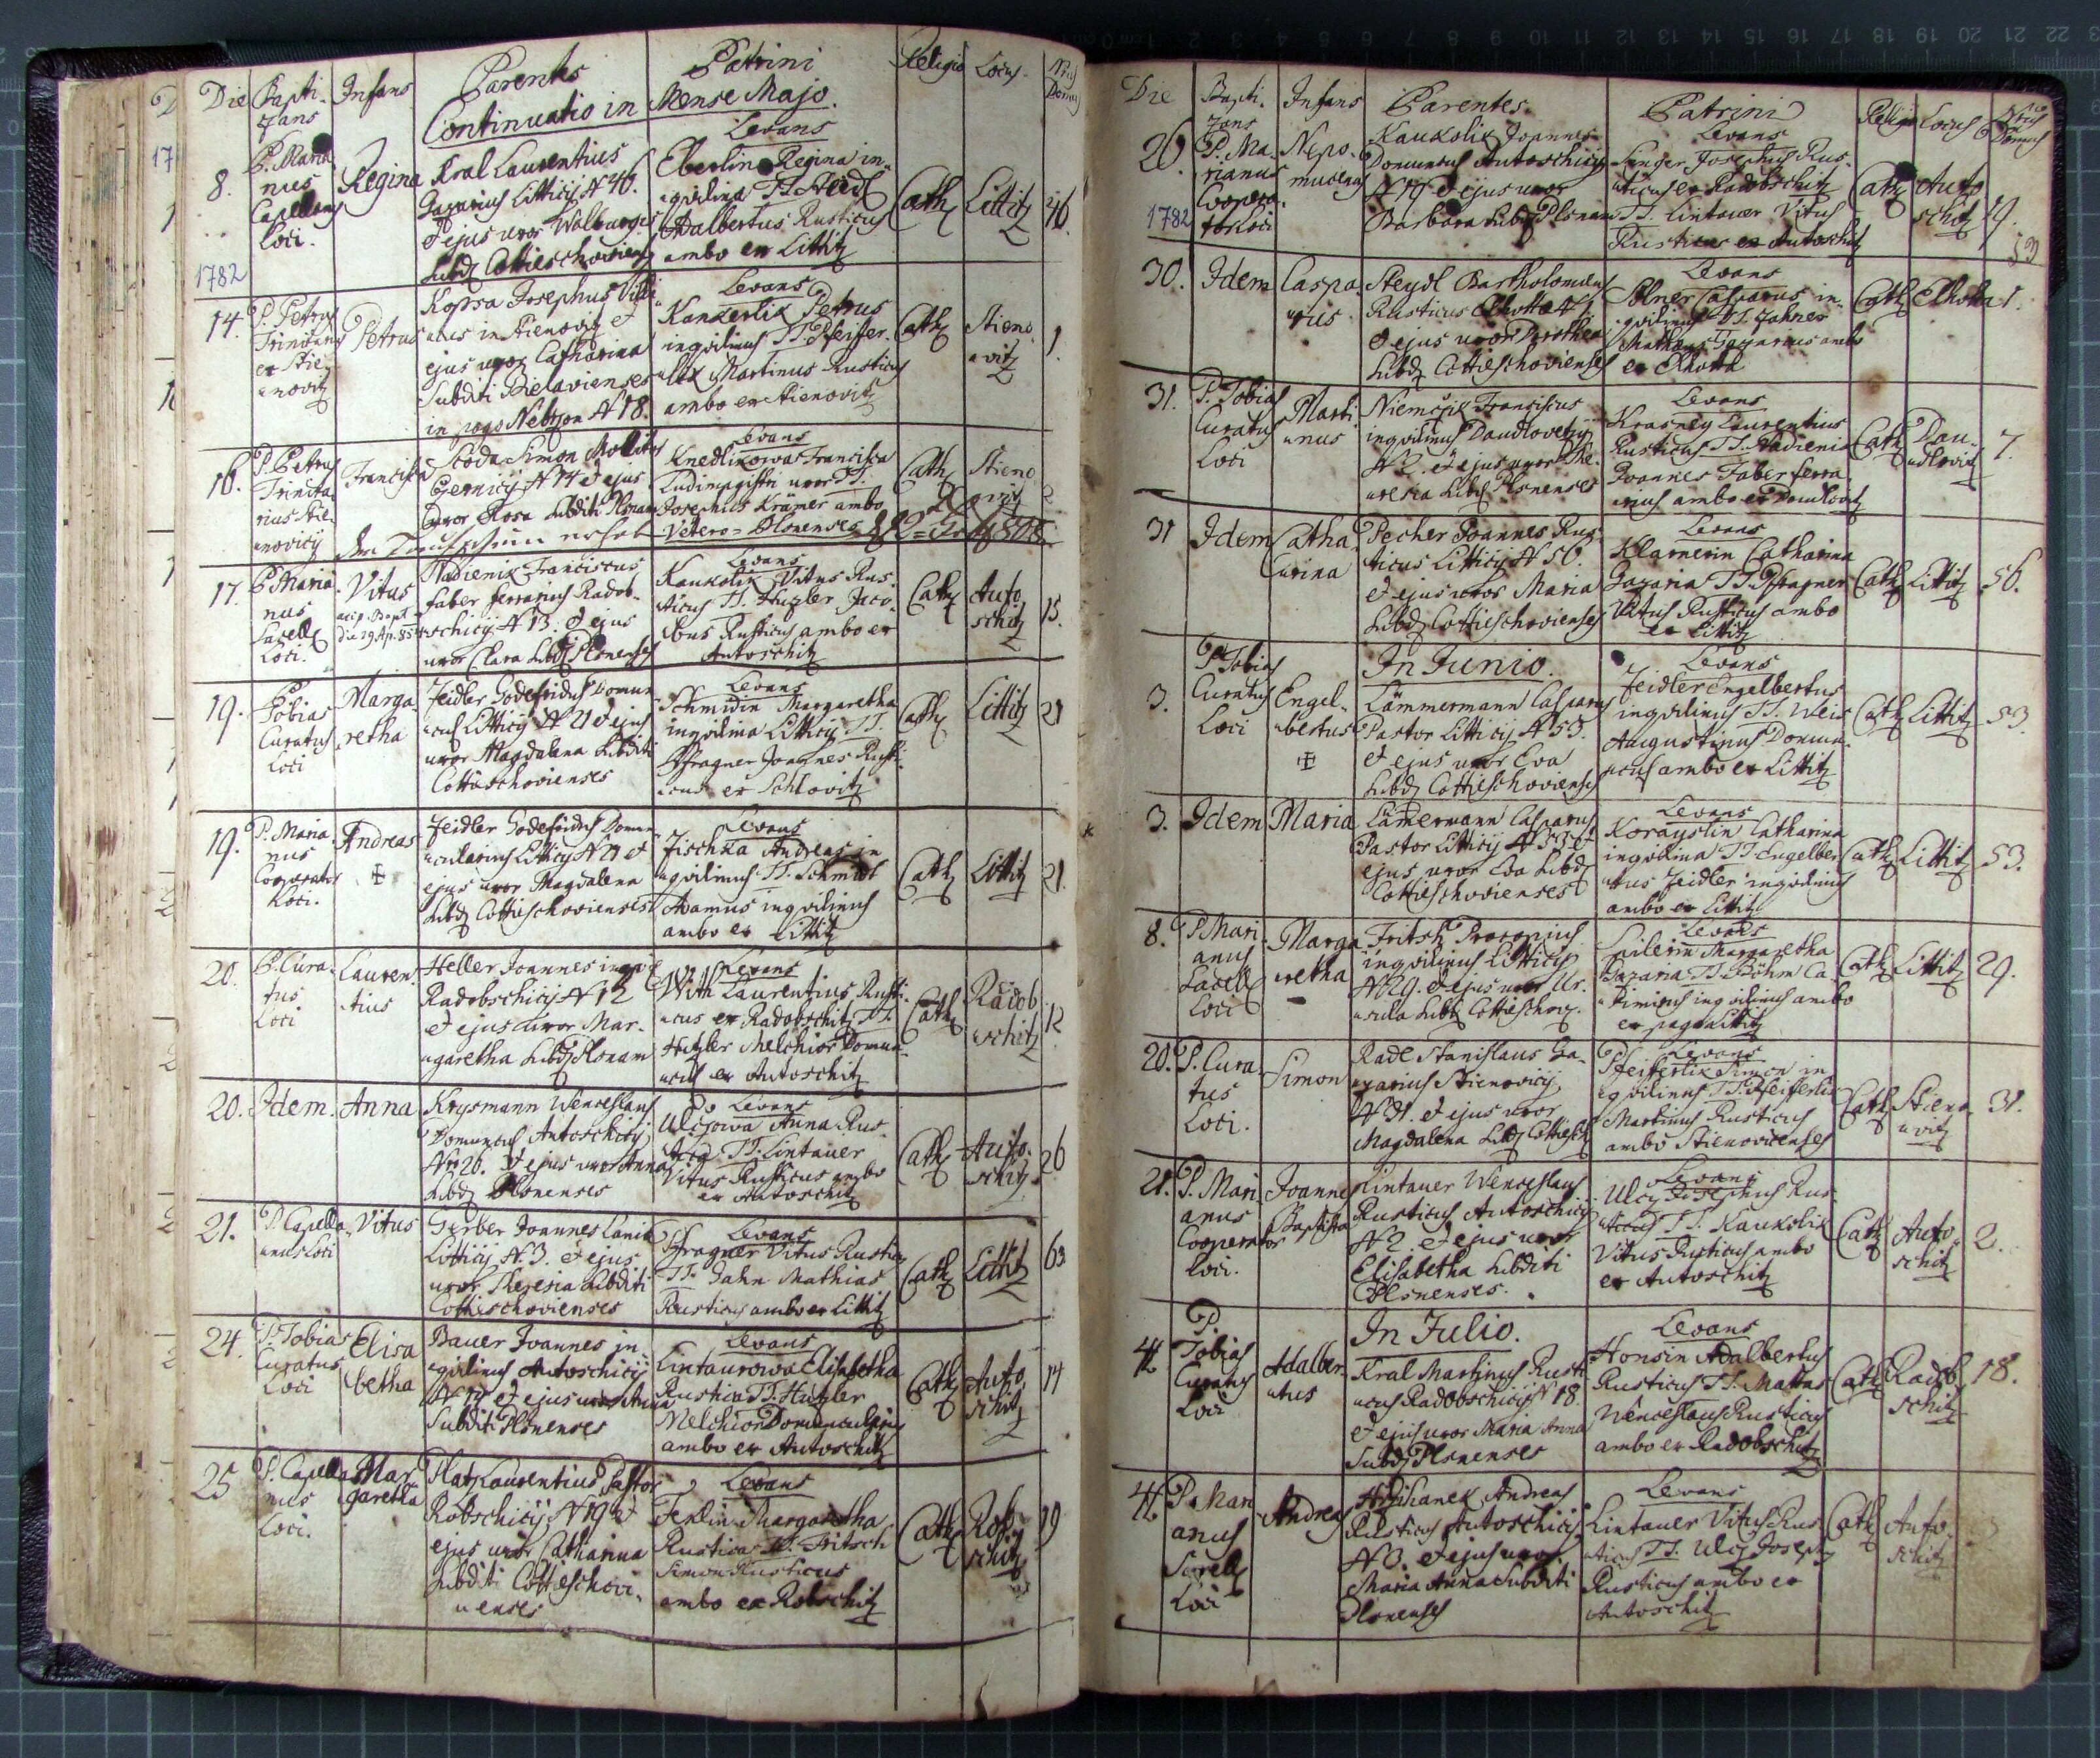 Die Bapti- Infans Parentes Patrini Religio Locus Nrus
zans Domus
Continuatio in Mense Majo.
8. P. Maria
nus
Capellanus
Loci.
Regina
Kral Laurentius
Gazarius Litticij N 46.
et ejus uxor Walburgis
Subd Cottieschoviens
Levans
Eberlin Regina in
quilina TT.
Adalbertus Rusticus
ambo ex Littitz
Cath Littitz 46.
1782
14. P. Petrus
Trinitarius
ex Stie
novitz
Petrus
Kopsa Josephus Villi
cus in Stienovitz et
ejus uxor Catharina
Subditi Bielavienses
in pago Nebzon N 18.
Levans
Kanzerlik Petrus
inquilinus TT. Pfeifer-
lik Martinus Rusticus
ambo ex Stienovitz
Cath Stieno
vitz 1.
16. P. Petrus
Trinita-
rius Stie-
novicij
Francisca
Scoda Simon Molitor
Gernicij N 14 et ejus
uxor Rosa Subditi Plsnam
Levans
Knedlikowa Francisca
Ludimagistri uxor TT.
Josephus Krämer ambo
Vetero-Plsnenses
Cath Stieno
vitz 2
17. P. Maria
nus
Sacell
Loci.
Vitus
die 29 Ap.
Nadienik Franciscus
faber ferrarius Radob-
schicij N 13. et ejus
uxor Clara Subd Plsnenses
Levans
Kaukolik Vitus Rus-
ticus TT. Huzler Jaco-
bus Rusticus ambo ex
Autoschitz
Cath Auto
schitz 15.
19. P.
Tobias
Curatus
Loci
Marga-
retha
Zeidler Godefridus Domun
cul Litticij N 21 et ejus
uxor Magdalena Subditi
Cottieschovienses
Levans
Schmidin Margaretha
inquilina Litticij TT.
Pfragner Joannes Rusti-
cus ex Schlovitz
Cath Littitz 21
19. P. Maria
nus
Cooperator
Loci.
Andreas
Zeidler Godefridus Domun
cularius Litticij N 21 et
ejus uxor Magdalena
Subd Cottieschovienses
Levans
Fischka Andreas in
quilinus TT. Schmidt
Adamus inquilinus
ambo ex Littitz
Cath Littitz 21.
20. P. Cura-
tus
Loci
Lauren-
tius
Heller Joannes inqvil
Radobschicij N 12
et ejus uxor Mar-
garetha Subd Plsnam
Levans
With Laurentius Rusti-
cus ex Radobschitz TT.
Hutzler Melchior Domun
cul ex Autoschitz
Cath Radob
schitz 12
20. Idem. Anna
Krysmann Wenceslaus
Domuncul Autoschicij
Nro 26. et ejus uxor Anna
Subd Plsnenses
Levans
Ulcjowa Anna Rus-
tica TT. Lintauer
Vitus Rusticus ambo
ex Autoschitz
Cath Auto-
schitz 26
21. P. Capella
nus Loci
Vitus
Gerber Joannes Lanio
Litticij N. 3. et ejus
uxor Theresia Subditi
Cottieschovienses
Levans
Pfragner Vitus Rusticus
TT. Jahn Mathias
Rusticus ambo ex Littitz
Cath Littitz 63
24. P. Tobias
Curatus
Loci
Elisa
betha
Bauer Joannes in-
quilinus Autoschicij
N 14 et ejus uxor Anna
Subditi Plsnenses
Levans
Lintaurowa Elisabetha
Rustica TT. Hutzler
Melchior Domuncularius
ambo ex Autoschitz
Cath Auto
schitz 14
25 P. Capella
nus
Loci.
Mar-
garetha
Platz Laurentius Pastor
Robschicij N 19 et
ejus uxor Catharina
Subditi Cottieschovi-
enses
Levans
Ferlin Margaretha
Rustica TT. Fritsch
Simon Rusticus
ambo ex Robschitz
Cath Rob-
schitz 19
Die Bapti- Infans Parentes Patrini Religio Locus Nrus
zans Domus
26. P. Ma-
rianus
Coopera-
tor Loci
1782
Nepo-
mucenus
Kaukolik Joannes
Domuncul Autoschicij
N 19 et ejus uxor
Barbara Subd Plsnam
Levans
Sanger Josephus Rus-
ticus ex Radobschitz
TT. Lintauer Vitus
Rusticus ex Autoschitz
Cath Auto
schitz 19.
53
30. Idem Caspa-
rus
Steydl Bartholomeus
Rusticus Elhotta N 1
et ejus uxor Dorothea
Subd Cottieschovienses
Levans
Polner Casparus in-
quilinus TT. Zahner
Matheus Gazarius ambo
ex Elhotta
Cath Elhotta 1.
31. P. Tobias
Curatus
Loci
Marti-
nus
Niemczik Franciscus
inquilinus Daudlovetzij
N 7. et ejus uxor The-
resia Subd Plsnenses
Levans
Krasney Laurentius
Rusticus TT. Nadienik
Joannes Faber ferra-
rius ambo ex Daudlovitz
Cath Dau-
dlovitz 7.
31 Idem Catha-
rina
Pecher Joannes Rus-
ticus Litticij N 56.
et ejus uxor Maria
Subd Cottieschovienses
Levans
Klarnerin Catharina
Gazaria TT. Pfragner
Vitus Rusticus ambo
ex Littitz
Cath Littitz 56.
In Junio.
3. P. Tobias
Curatus
Loci
Engel-
bertus
Lämmermann Casparus
Pastor Litticij N 53.
et ejus uxor Eva
Subd Cottieschovienses
Levans
Zeidler Engelbertus
inquilinus TT. Weis
Augustinus Domun-
cul ambo ex Littitz
Cath Littitz 53.
3. Idem Maria
Lämermann Casparus
Pastor Litticij N 53 et
ejus uxor Eva Subd
Cottieschovienses
Levans
Koraystin Catharina
inquilina TT Engelber
tus Zeidler inquilinus
ambo ex Littitz
Cath Littitz 53.
8. P Mari-
anus
Sacell
Loci
Marga
retha
Fritsch Procopius
inquilinus Litticij
N 29. et ejus uxor Ur-
sula Subd Cottieschov.
Levans
Margaretha
Gazaria TT Böhm Ca
simirus inquilinus ambo
ex pago Littitz
Cath Littitz 29.
20. P. Cura-
tus
Loci.
Simon
Radl Stanislaus Ga-
zarius Stienovicij
N 31. et ejus uxor
Magdalena Subd Cottiesch
Levans
Pfeiferlik Simon in
quilinus TT. Pfeiferlik
Martinus Rusticus
ambo Stienovicenses
Cath Stieno
vitz 31.
21. P. Mari-
anus
Cooperator
Loci.
Joannes
Baptista
Lintauer Wenceslaus
Rusticus Autoschicij
N 2 et ejus uxor
Elisabetha Subditi
Plsnenses.
Levans
Ulcj Josephus Rus-
ticus TT. Kaukolik
Vitus Rusticus ambo
ex Autoschitz
Cath Auto
schitz 2.
In Julio.
4. P.
Tobias
Curatus
Loci
Adalber-
tus
Kral Martinus Rusti
cus Radobschicij N 18.
et ejus uxor Maria Anna
Subd Plsnenses
Levans
Honsin Adalbertus
Rusticus TT. Mattas
Wenceslaus Rusticus
ambo ex Radobschitz
Cath Radob
schitz 18.
4. P. Mari
anus
Sacell
Loci
Andreas
Andreas
Rusticus Autoschicij
N 3. et ejus uxor
Maria Anna Subditi
Plsnenses
Levans
Lintauer Vitus Rus
ticus TT. Ulcj Joseph
Rusticus ambo ex
Autoschitz
Cath Auto-
schitz